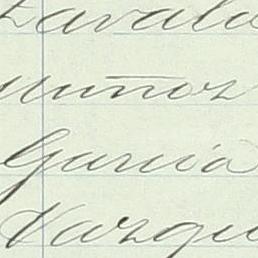 Zavala
Muñoz
Garcia
Vazqu